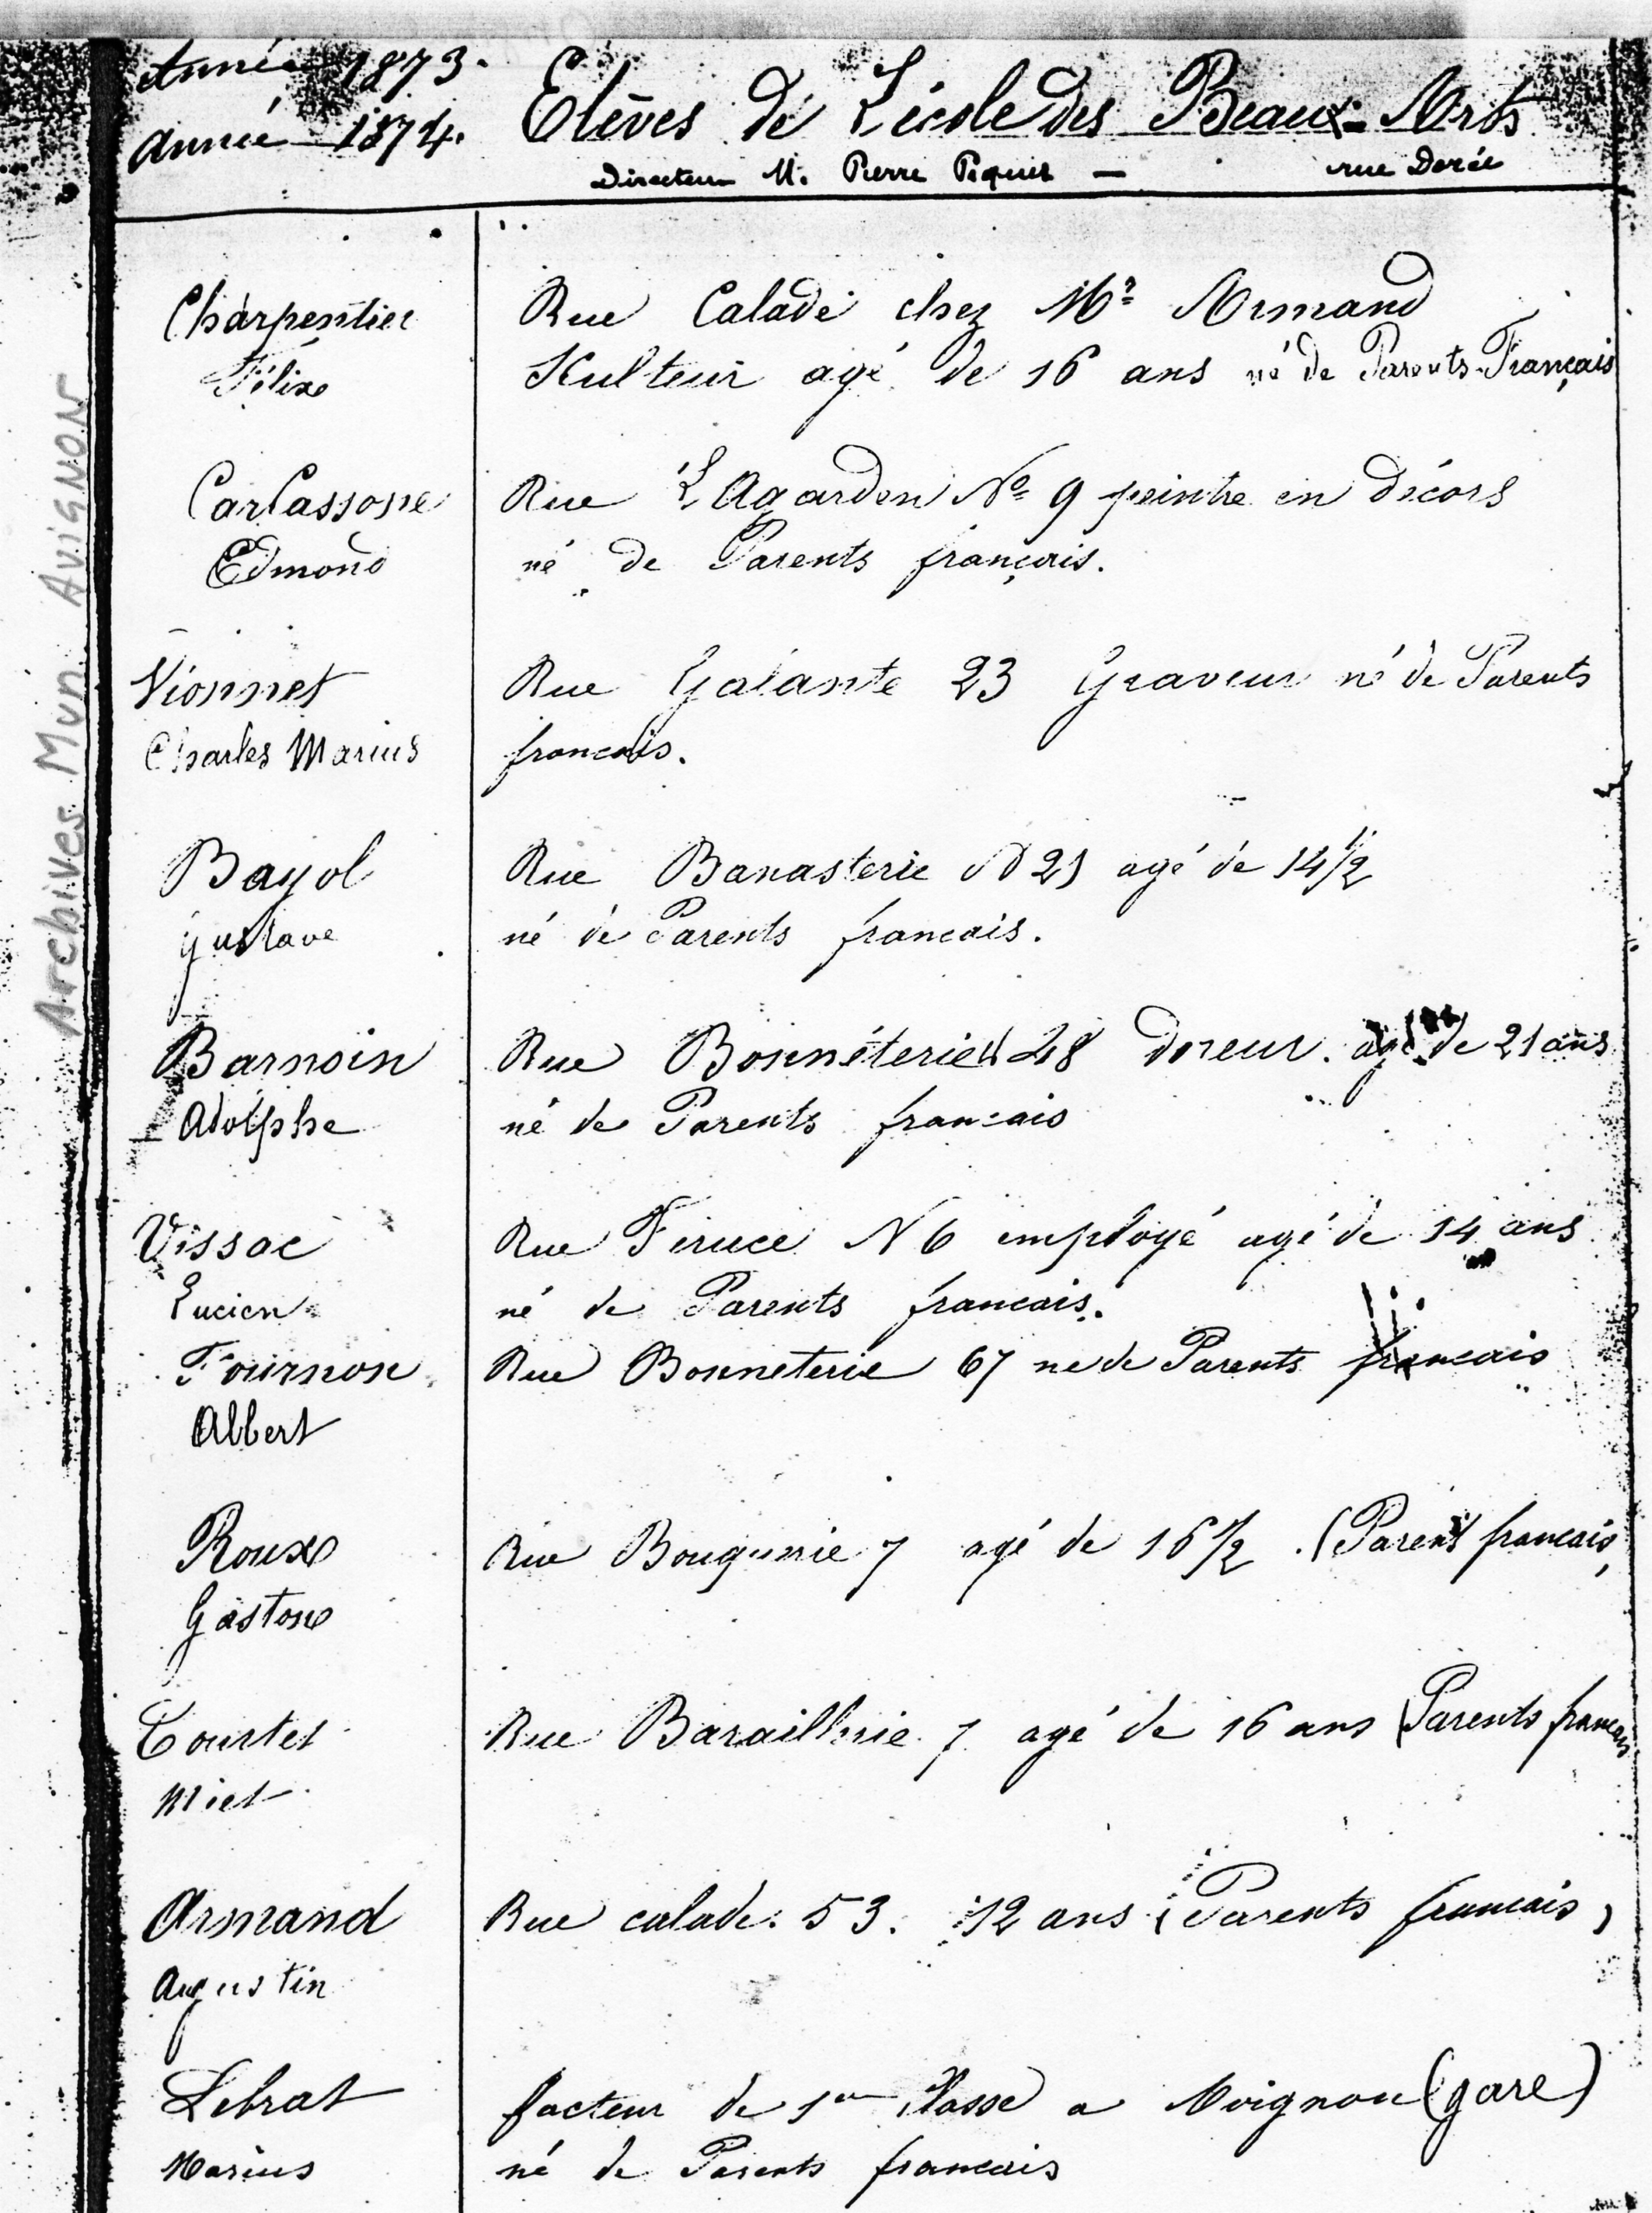 Année 1873.
Année 1874.
Elèves de L'école des Beaux-Arts
Directeur M. Pierre Grivolas — rue Dorée
Archives Mun. AVIGNON
Charpentier
Félix
Rue Calade chez Mr Armand
Skulteur agé de 16 ans né de Parents Français
Carcassone
Edmond
Rue L'Agarden No 9 peintre en décors
né de Parents français.
Vionnet
Charles Marius
Rue Galante 23 Graveur né de Parents
francais.
Bayol
Gustave
Rue Banasterie N 21 agé de 14 1/2
né de Parents francais.
Barnoin
Adolphe
Rue Bonnéterie N 28 doreur. agé de 21 ans
né de Parents francais
Vissac
Lucien
Rue Feruce N 6 employé agé de 14 ans
né de Parents francais.
Fournon
Albert
Rue Bonneterie 67 ne de Parents francais
Roux
Gaston
Rue Bouquerie 7 agé de 16 1/2 (Parent francais,
Courtet
Rue Baraillerie 7 agé de 16 ans (Parents francais
Armand
Augustin
Rue calade. 53. 12 ans (Parents francais)
Lebrat
Marius
facteur de 1er Classe a Avignon (gare)
né de Parents francais